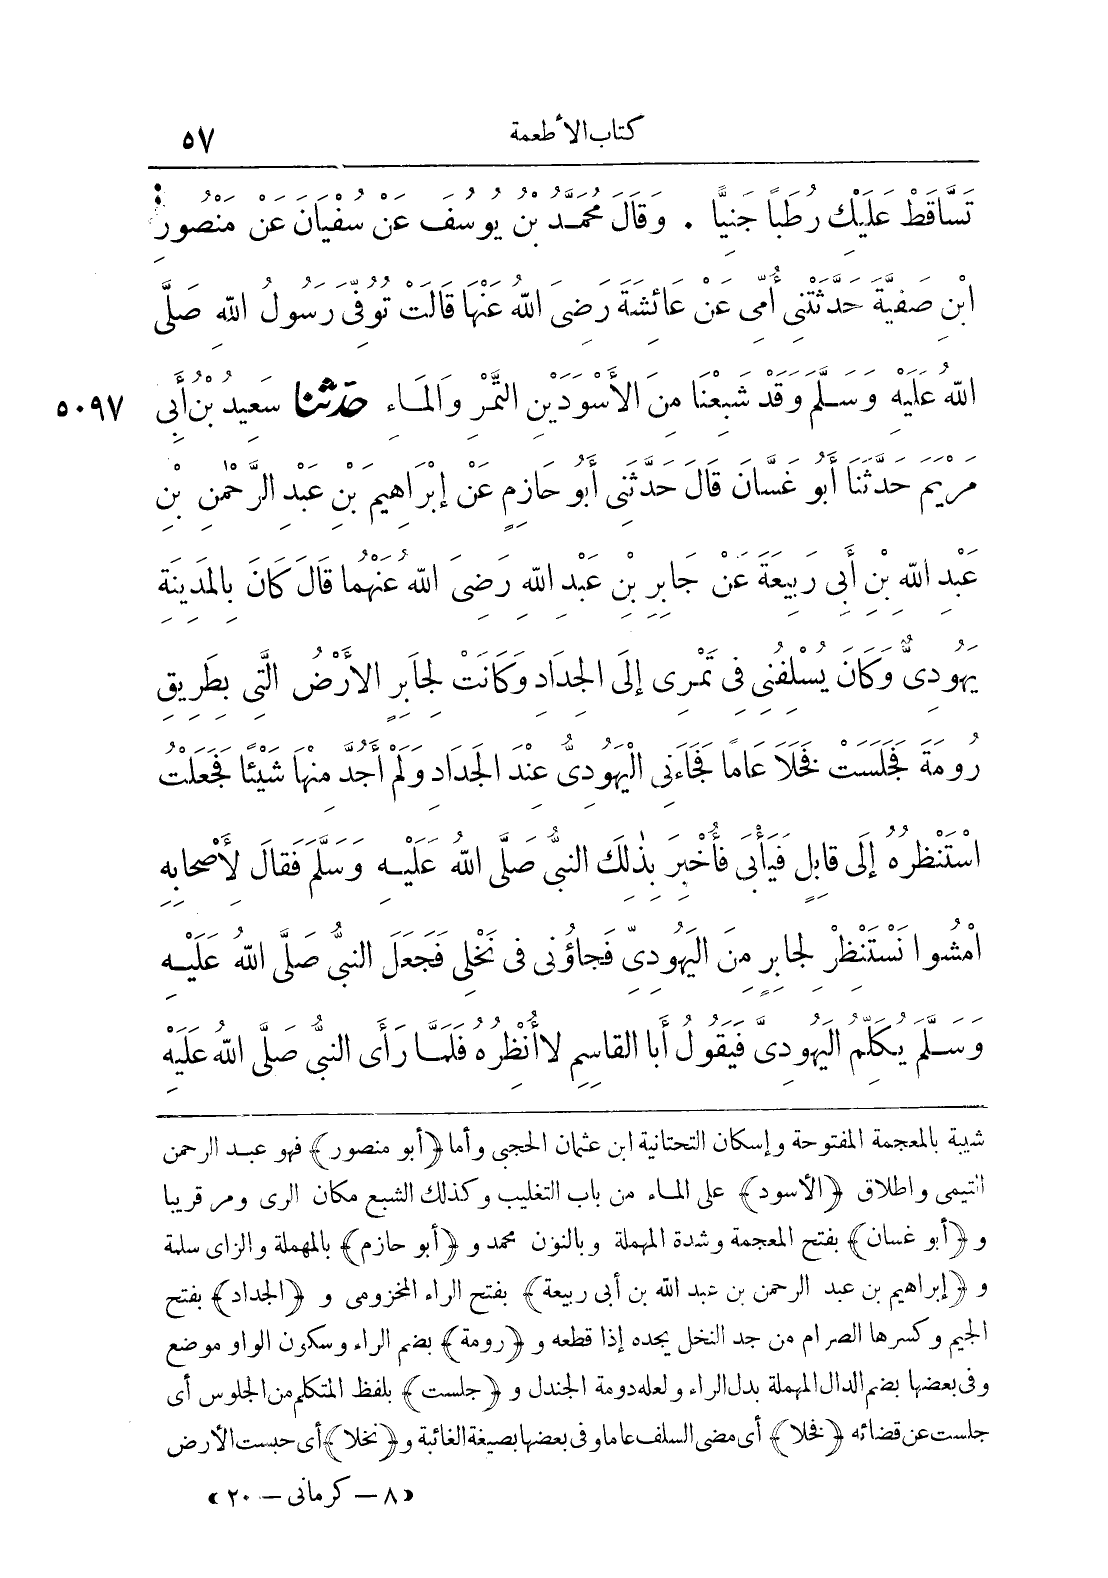 كتاب الأطعمة ٥٧
تَسَّاقَطْ عَلَيْكِ رُطَبًا جَنِيًّا . وَقَالَ مُحَمَّدُ بْنُ يُوسُفَ عَنْ سُفْيَانَ عَنْ مَنْصُورِ
ابْنِ صَفِيَّةَ حَدَّثَتْنِى أُمِّى عَنْ عَائِشَةَ رَضِىَ اللهُ عَنْهَا قَالَتْ تُوُفِّىَ رَسُولُ اللهِ صَلَّى
اللهُ عَلَيْهِ وَسَلَّمَ وَقَدْ شَبِعْنَا مِنَ الأَسْوَدَيْنِ التَّمْرِ وَالْمَاءِ حَدّثنا سَعِيدُ بْنُ أَبِى ٥٠٩٧
مَرْيَمَ حَدَّثَنَا أَبُو غَسَّانَ قَالَ حَدَّثَنِى أَبُو حَازِمٍ عَنْ إِبْرَاهِيمَ بْنِ عَبْدِ الرَّحْمٰنِ بْنِ
عَبْدِ اللهِ بْنِ أَبِى رَبِيعَةَ عَنْ جَابِرِ بْنِ عَبْدِ اللهِ رَضِىَ اللهُ عَنْهُمَا قَالَ كَانَ بِالْمَدِينَةِ
يَهُودِىٌّ وَكَانَ يُسْلِفُنِى فِى تَمْرِى إِلَى الْجِدَادِ وَكَانَتْ لِجَابِرٍ الأَرْضُ الَّتِى بِطَرِيقِ
رُومَةَ فَجَلَسَتْ فَخَلَا عَامًا فَجَاءَنِى الْيَهُودِىُّ عِنْدَ الْجَدَادِ وَلَمْ أَجُدَّ مِنْهَا شَيْئًا فَجَعَلْتُ
اسْتَنْظِرُهُ إِلَى قَابِلٍ فَيَأْبَى فَأُخْبِرَ بِذٰلِكَ النبىُّ صَلَّى اللهُ عَلَيْهِ وَسَلَّمَ فَقَالَ لِأَصْحَابِهِ
امْشُوا نَسْتَنْظِرْ لِجَابِرٍ مِنَ الْيَهُودِىِّ فَجَاؤُنِى فِى نَخْلِى فَجَعَلَ النبىُّ صَلَّى اللهُ عَلَيْهِ
وَسَلَّمَ يُكَلِّمُ الْيَهُودِىَّ فَيَقُولُ أَبا القَاسِمِ لا أُنْظِرُهُ فَلَمَّا رَأَى النبىُّ صَلَّى اللهُ عَلَيْهِ
شيبة بالمعجمة المفتوحة وإسكان التحتانية ابن عثمان الحجبى وأما ﴿أبو منصور﴾ فهو عبد الرحمن
التيمى واطلاق ﴿الأسود﴾ على الماء من باب التغليب وكذلك الشبع مكان الرى ومر قريبا
و ﴿أبو غسان﴾ بفتح المعجمة وشدة المهملة وبالنون محمد و ﴿أبو حازم﴾ بالمهملة والزاى سلمة
و ﴿إبراهيم بن عبد الرحمن بن عبد الله بن أبى ربيعة﴾ بفتح الراء المخزومى و ﴿الجداد﴾ بفتح
الجيم وكسرها الصرام من جد النخل يجده إذا قطعه و ﴿رومة﴾ بضم الراء وسكون الواو موضع
وفى بعضها بضم الدال المهملة بدل الراء ولعله دومة الجندل و ﴿جلست﴾ بلفظ المتكلم من الجلوس أى
جلست عن قضائه ﴿فخلا﴾ أى مضى السلف عاما وفى بعضها بصيغة الغائبة و ﴿نخلا﴾ أى حبست الأرض
«٨ – كرمانى – ٢٠»